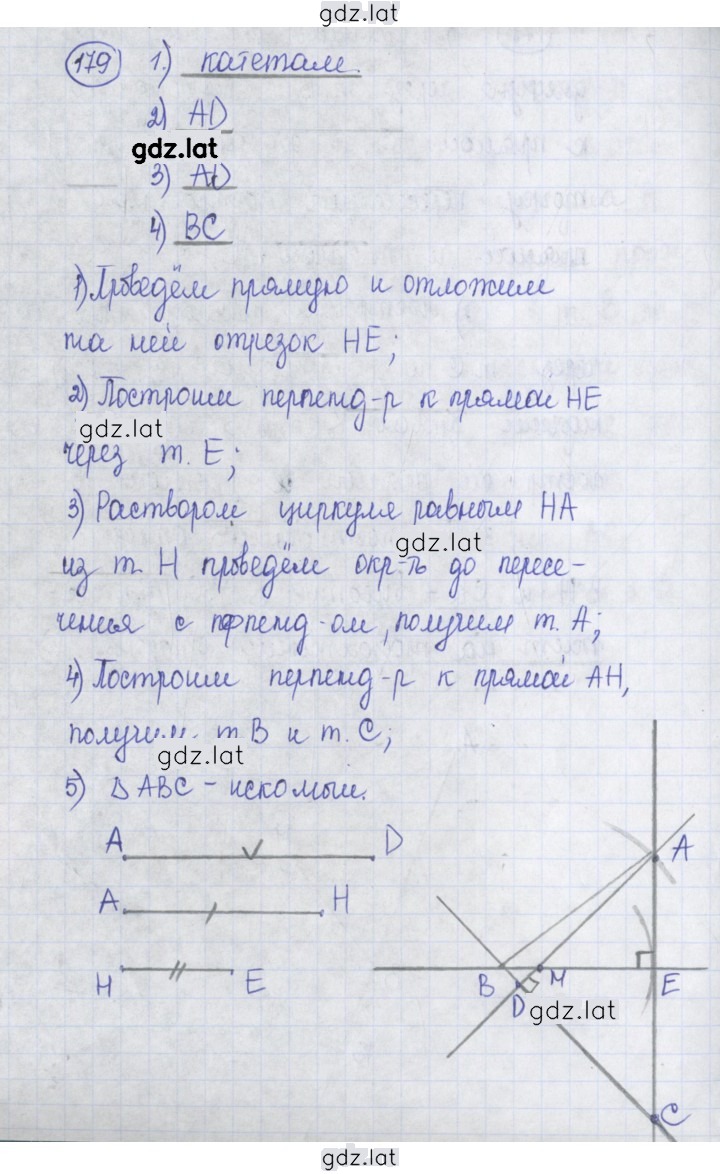 gdz.lat
179 1.) катетам.
2) AD
gdz.lat
3) AD
4) BC
1) Проведём прямую и отложим
на ней отрезок HE;
2) Построим перпенд-р к прямой HE
gdz.lat
через т. E;
3) Раствором циркуля равным HA
gdz.lat
из т. H проведём окр-ть до пересе-
чения с перпенд-ом, получим т. A;
4) Построим перпенд-р к прямой AH,
получим т. B и т. C;
gdz.lat
5) Δ ABC - искомый.
A D
A H
H E
A
B M E
D
gdz.lat
C
gdz.lat